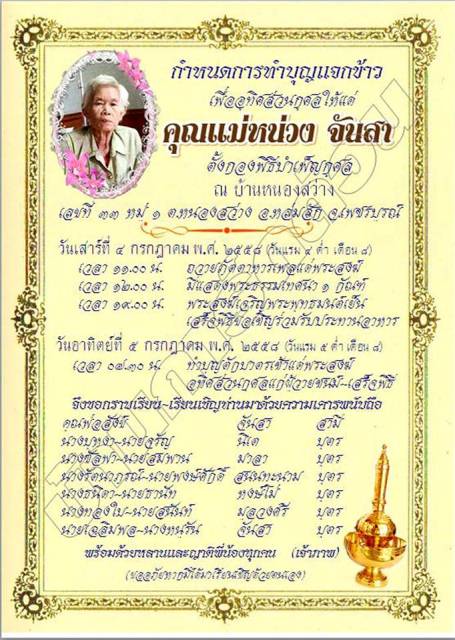 กำหนดการทำบุญแจกข้าว
เพื่ออุทิศส่วนกุศลให้แด่
คุณแม่หน่วง จันสา
ตั้งกองพิธีบำเพ็ญกุศล
ณ บ้านหนองสว่าง
เลขที่ ๓๓ หมู่ ๑ ต.หนองสว่าง อ.หล่มสัก จ.เพชรบูรณ์
วันเสาร์ที่ ๔ กรกฎาคม พ.ศ. ๒๕๕๘ (วันแรม ๔ ค่ำ เดือน ๘)
เวลา ๑๑.๐๐ น. ถวายภัตตาหารเพลแด่พระสงฆ์
เวลา ๑๒.๐๐ น. มีแสดงพระธรรมเทศนา ๑ กัณฑ์
เวลา ๑๙.๐๐ น. พระสงฆ์เจริญพระพุทธมนต์เย็น
เสร็จพิธีขอเชิญร่วมรับประทานอาหาร
วันอาทิตย์ที่ ๕ กรกฎาคม พ.ศ. ๒๕๕๘ (วันแรม ๕ ค่ำ เดือน ๘)
เวลา ๐๗.๓๐ น. ทำบุญตักบาตรเช้าแด่พระสงฆ์
อุทิศส่วนกุศลแก่ผู้วายชนม์-เสร็จพิธี
จึงขอกราบเรียน-เรียนเชิญท่านมาด้วยความเคารพนับถือ
คุณพ่อสังข์ จันสา สามี
นางบุหงา-นายจรูญ นิเต บุตร
นางชัลฟา-นายสมพาน มาลา บุตร
นางรัตนาภรณ์-นายพงษ์ศักดิ์ สนั่นทะนาม บุตร
นางธนิดา-นายธานัท หงษ์ไม้ บุตร
นางทองใบ-นายสนั่นท์ มลวงศรี บุตร
นายเฉลิมพล-นางหนูริน จันสา บุตร
พร้อมด้วยหลานและญาติพี่น้องทุกคน (เจ้าภาพ)
(ขออภัยหากมิได้มาเรียนเชิญด้วยตนเอง)